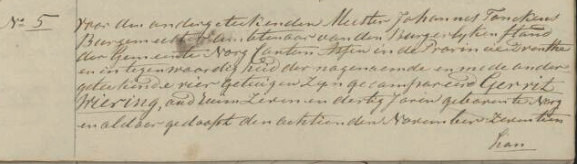 No 5
Voor den ondergeteekenden Meester Johannes Tonckens
Burgemeester Ambtenaar van den Burgerlyken Stand
der Gemeente Norg Canton Assen in de Provincie Drenthe
en in tegenwoordigheid der nagenoemde en mede onder
geteekende vier getuigen Zijn gecompareerd Gerrit
Wiering, oud Zeven en dertig Jaren geboren te Norg
en aldaar gedoopt den achttienden November Zeventien
hon